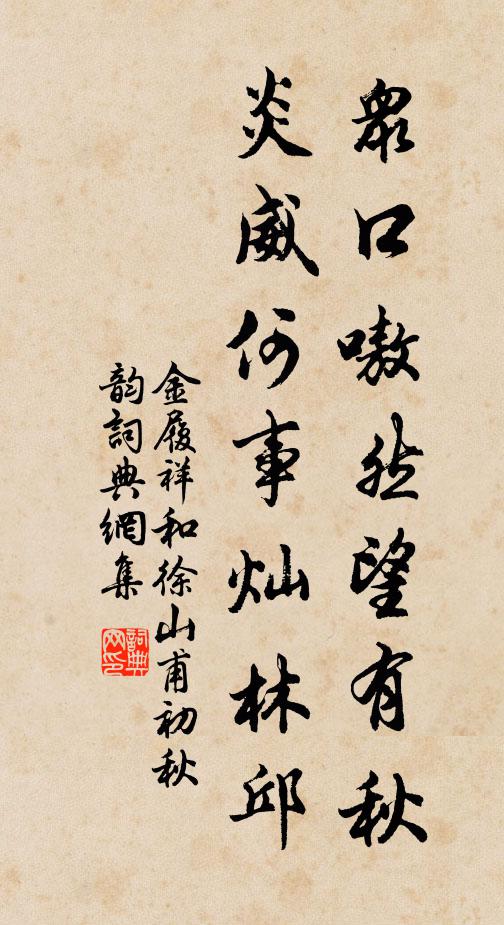 眾口嗷然望有秋
炎威何事灿林邱
金履祥和徐山甫初秋
韵詞典網集
詞典
网印